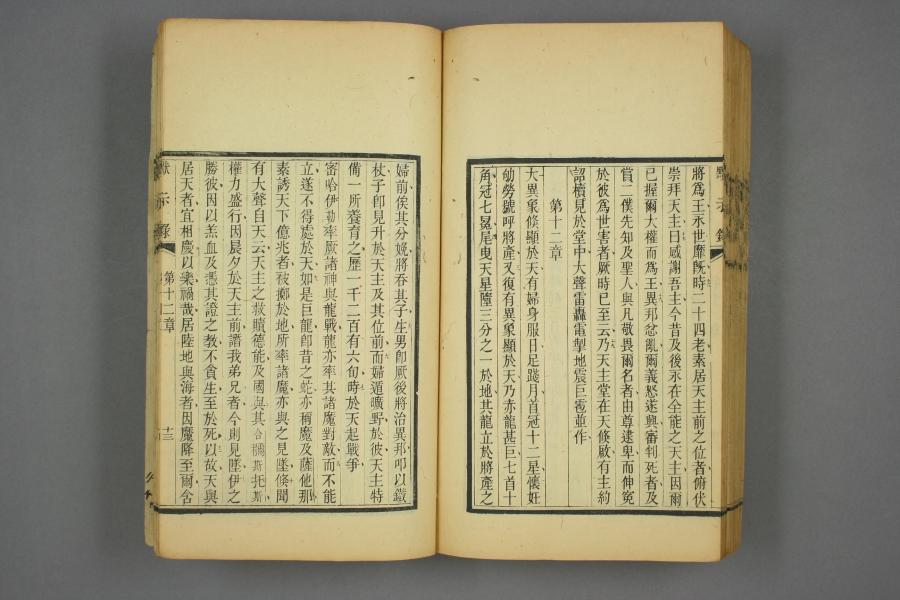 將爲王永世靡旣時二十四老素居天主前之位者俯伏
崇拜天主曰感謝吾主今昔及後永在全能之天主因爾
已握爾大權而爲王異邦忿亂爾義怒遂興審判死者及
賞二僕先知及聖人與凡敬畏爾名者由尊逮卑而伸寃
於彼爲世害者厥時已至云乃天主堂在天倐啟有主約
詔櫝見於堂中大聲雷轟電掣地震巨雹並作
第十二章
大異象倐顯於天有婦身服日足踐月首冠十二星懷妊
劬勞號呼將產又復有異象顯於天乃赤龍甚巨七首十
角冠七冕尾曳天星隕三分之一於地其龍立於將產之
婦前俟其分娩將吞其子生男卽厥後將治異邦叩以鐵
杖子卽見升於天主及其位前而婦遁曠野於彼天主特
備一所養育之歷一千二百有六旬時於天起戰爭
密哈伊勒率厥諸神與龍戰龍亦率其諸魔對敵而不能
立遂不得處於天如是巨龍卽昔之蛇亦稱魔及薩他那
素誘天下億兆者被擲於地所率諸魔亦與之見墜倐聞
有大聲自天云天主之救贖德能及國與其合礪斯托斯
權力盛行因晨夕於天主前譖我弟兄者今則見墜伊之
勝彼因以羔血及憑其證之教不貪生至於死以故天與
居天者宜相慶以樂禍哉居陸地與海者因魔降至爾含
默示錄
第十二章
十三